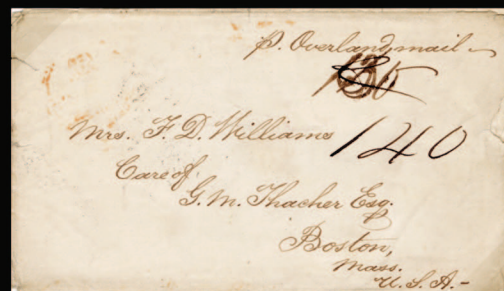 p. Overland mail
Mrs. F. D. Williams
140
Care of
G. M. Thacher Esq.
Boston,
Mass.
U. S. A.